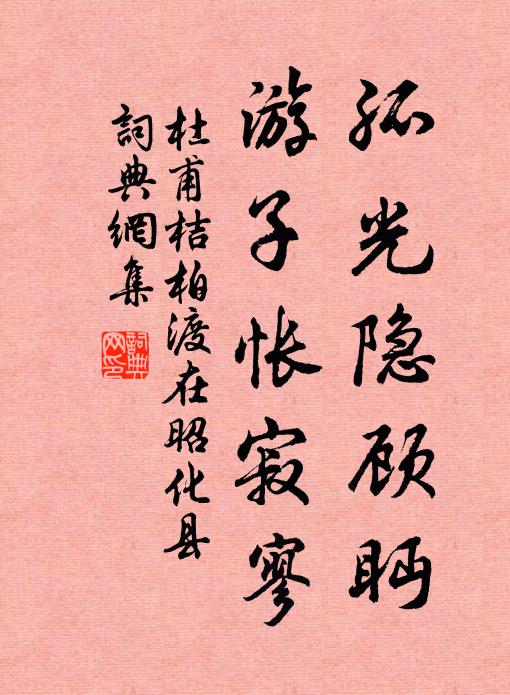 孤光隐顾眄
游子怅寂寥
杜甫桔柏渡在昭化县
詞典網集
詞典网印